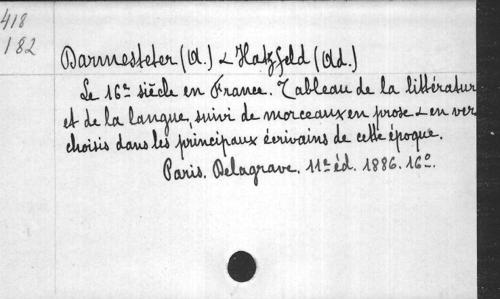 418
182
Darmesteter (A.) & Hatzfeld (Ad.)
Le 16e siècle en France. Tableau de la littératur
et de la langue, suivi de morceaux en prose & en ver
choisis dans les principaux écrivains de cette époque.
Paris. Delagrave. 11e éd. 1886. 16o.